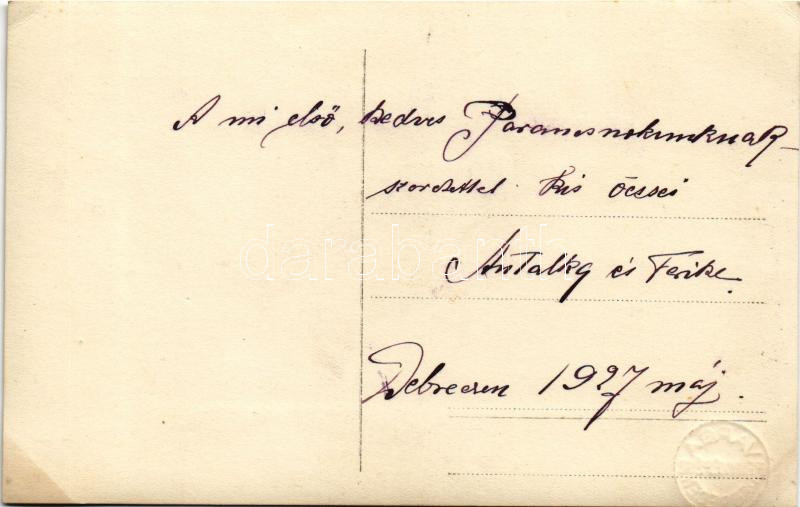 A mi első, kedves Parancsnokunknak
szeretettel kis öccsei
Antalka és Ferike.
Debreczen 1927 máj.
darabanth